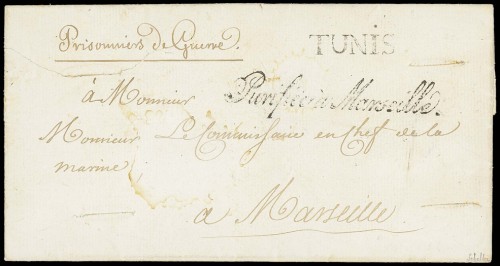 Prisonniers de Guerre.
TUNIS
Purifié à Marseille.
à Monsieur
Monsieur Le Commissaire en Chef de la
marine
à Marseille